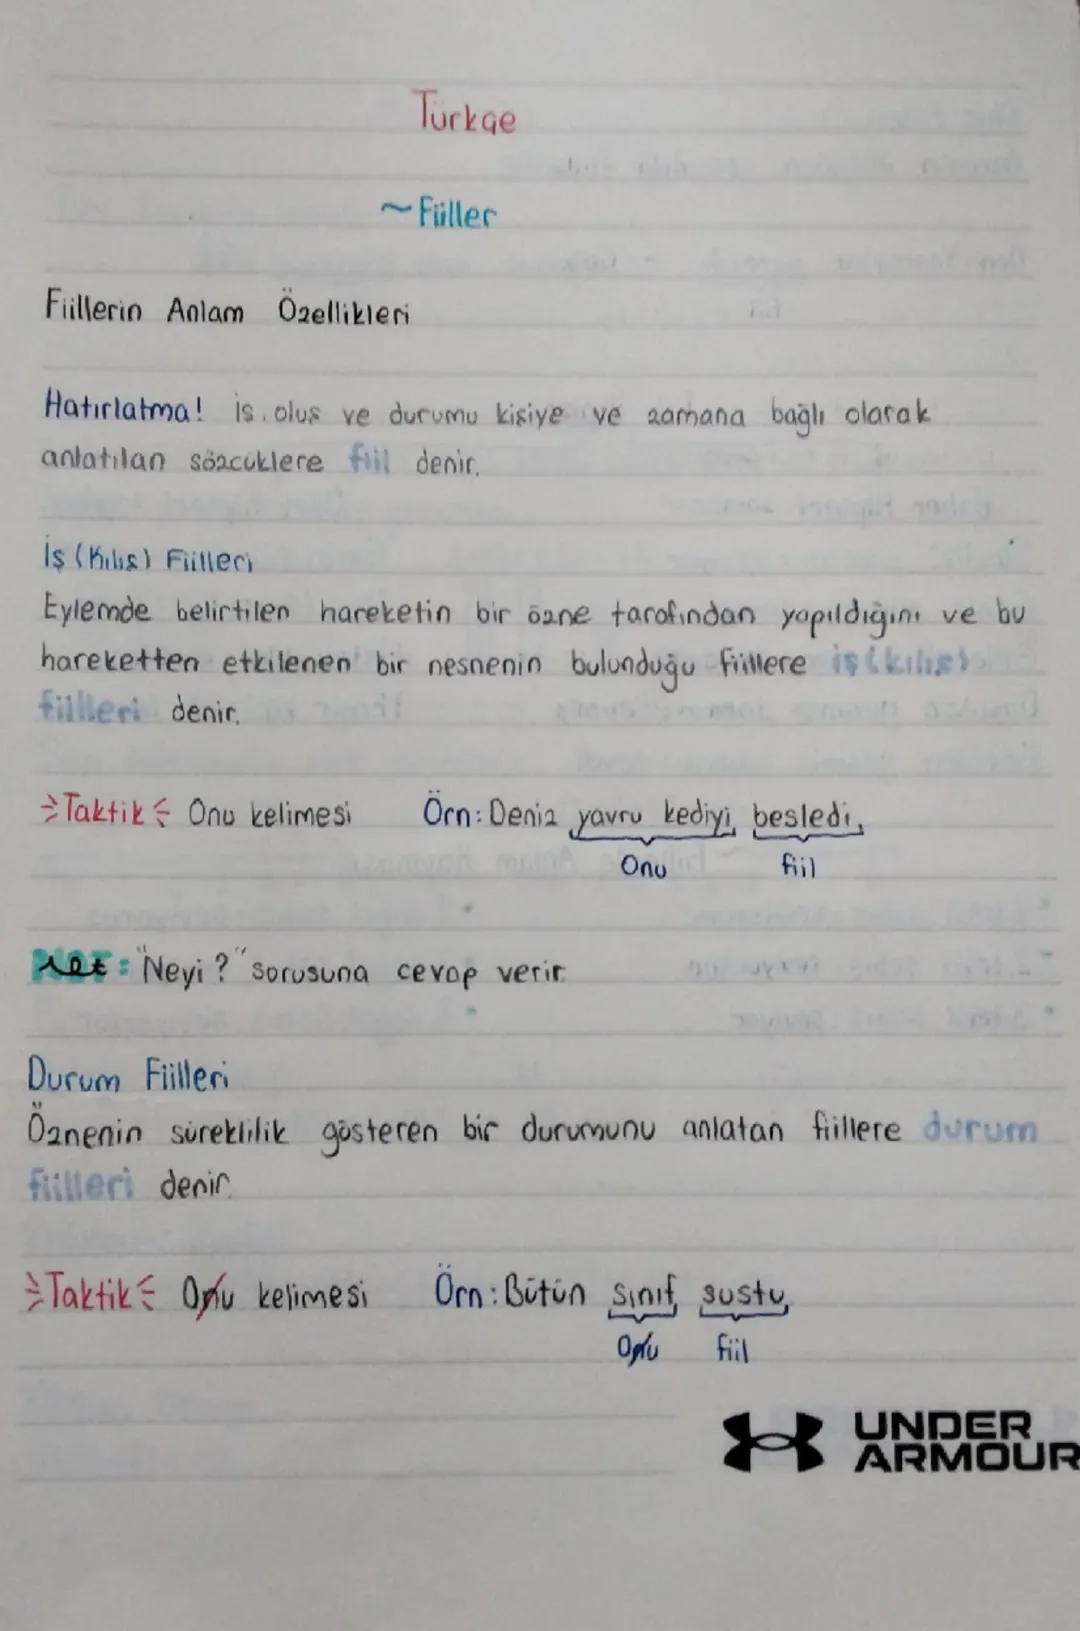 Türkçe
~Fiiller
Fiillerin Anlam Özellikleri
Hatırlatma! İş, oluş ve durumu kişiye ve zamana bağlı olarak
anlatılan sözcüklere fiil denir.
İş (Kılış) Fiilleri
Eylemde belirtilen hareketin bir özne tarafından yapıldığını ve bu
hareketten etkilenen bir nesnenin bulunduğu fiillere iş (kılış)
fiilleri denir.
Taktik Onu kelimesi Örn: Deniz yavru kediyi besledi.
Onu fiil
NOT: "Neyi?" sorusuna cevap verir.
Durum Fiilleri
Öznenin süreklilik gösteren bir durumunu anlatan fiillere durum
fiilleri denir.
Taktik Onu kelimesi Örn: Bütün sınıf sustu.
Onu fiil
UNDER
ARMOUR